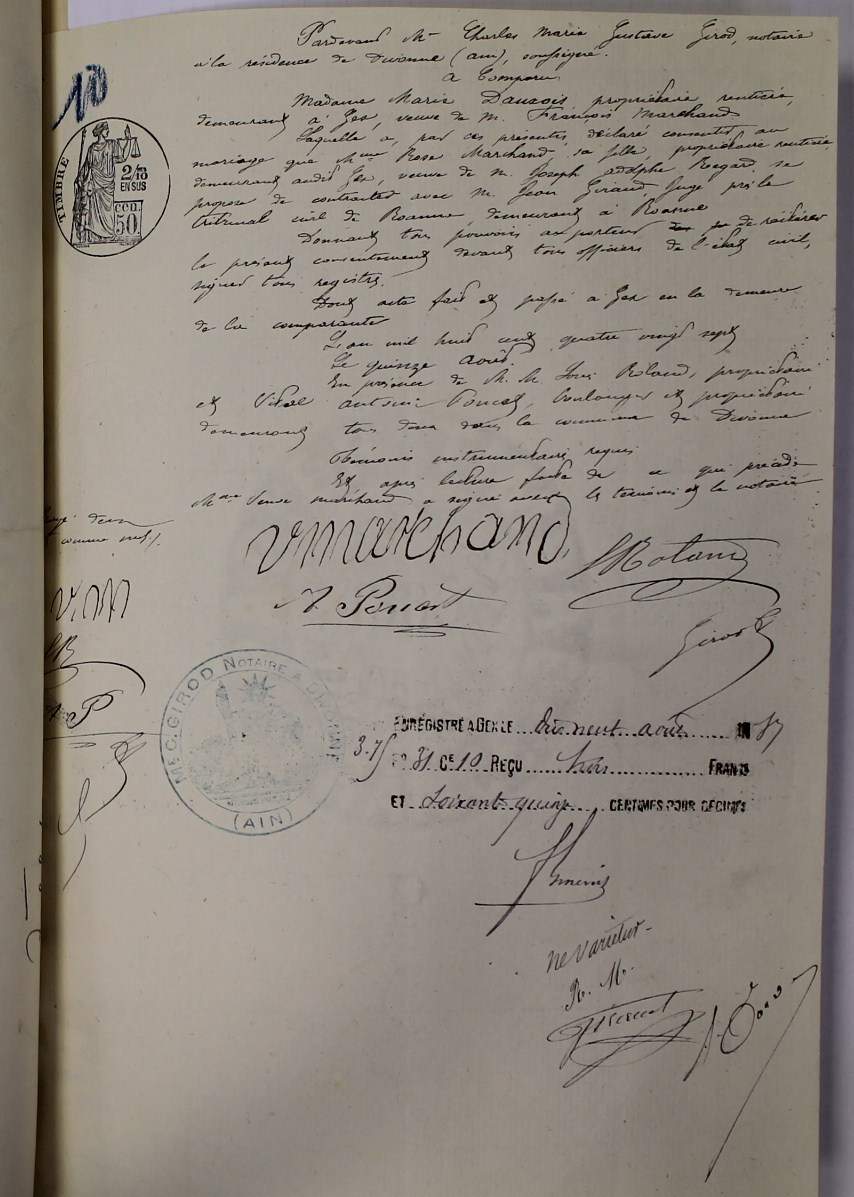 10
Pardevant Me Charles Marie Gustave Girod, notaire
à la résidence de Divonne (ain), soussigné.
a Comparu
Madame Marie propriétaire rentière,
demeurant à Gex, veuve de m. François Marchand
Laquelle a, par ces présentes, déclaré consentir au
mariage que Mme Rose Marchand, sa fille, propriétaire rentière
demeurant audit Gex, veuve de m. Joseph adolphe Regard se
propose de contracter avec m. Jean Giraud Juge près le
tribunal civil de Roanne, demeurant à Roanne
Donnant tous pouvoirs au porteur de réitérer
le présent consentement devant tous officiers de l'état civil,
signer tous registres.
Dont acte fait et passé à Gex en la demeure
de la comparante
L'an mil huit cent quatre vingt sept
Le quinze août.
En présence de M. M. Louis Roland, propriétaire
et Vital antoine Poncet, boulanger et propriétaire
demeurant tous deux dans la commune de Divonne
Témoins instrumentaires requis
Et après lecture faite de ce qui précède
Mme Veuve marchand a signé avec les témoins et le notaire
TIMBRE
2/10
EN SUS
CEN.
50
comme nuls.
V. M
LR
P
V marchand
LRoland
V. Poncet
Girod
ME C. GIROD NOTAIRE A DIVONNE
(AIN)
ENREGISTRÉ A GEX LE dix neuf août 1887
3.75
Fo 31 Ce 10 REÇU trois FRANCS
ET soixante quinze CENTIMES POUR DÉCIMES
ne varietur
R. M.